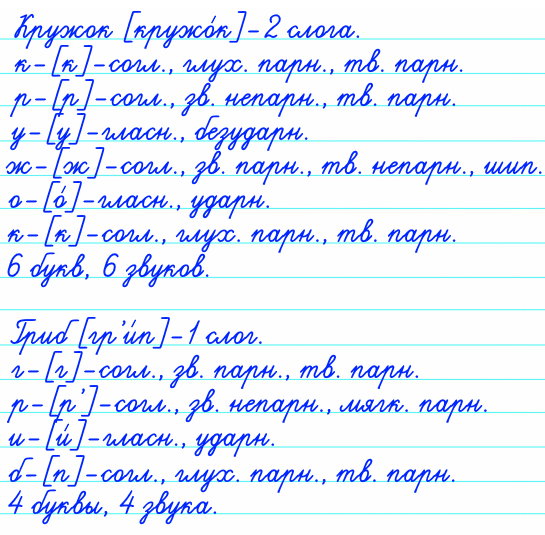 Кружок [кружо́к]-2 слога.
к-[к]-согл., глух. парн., тв. парн.
р-[р]-согл., зв. непарн., тв. парн.
у-[у]-гласн., безударн.
ж-[ж]-согл., зв. парн., тв. непарн., шип.
о-[о́]-гласн., ударн.
к-[к]-согл., глух. парн., тв. парн.
6 букв, 6 звуков.
Гриб [гр'и́п]-1 слог.
г-[г]-согл., зв. парн., тв. парн.
р-[р']-согл., зв. непарн., мягк. парн.
и-[и́]-гласн., ударн.
б-[п]-согл., глух. парн., тв. парн.
4 буквы, 4 звука.